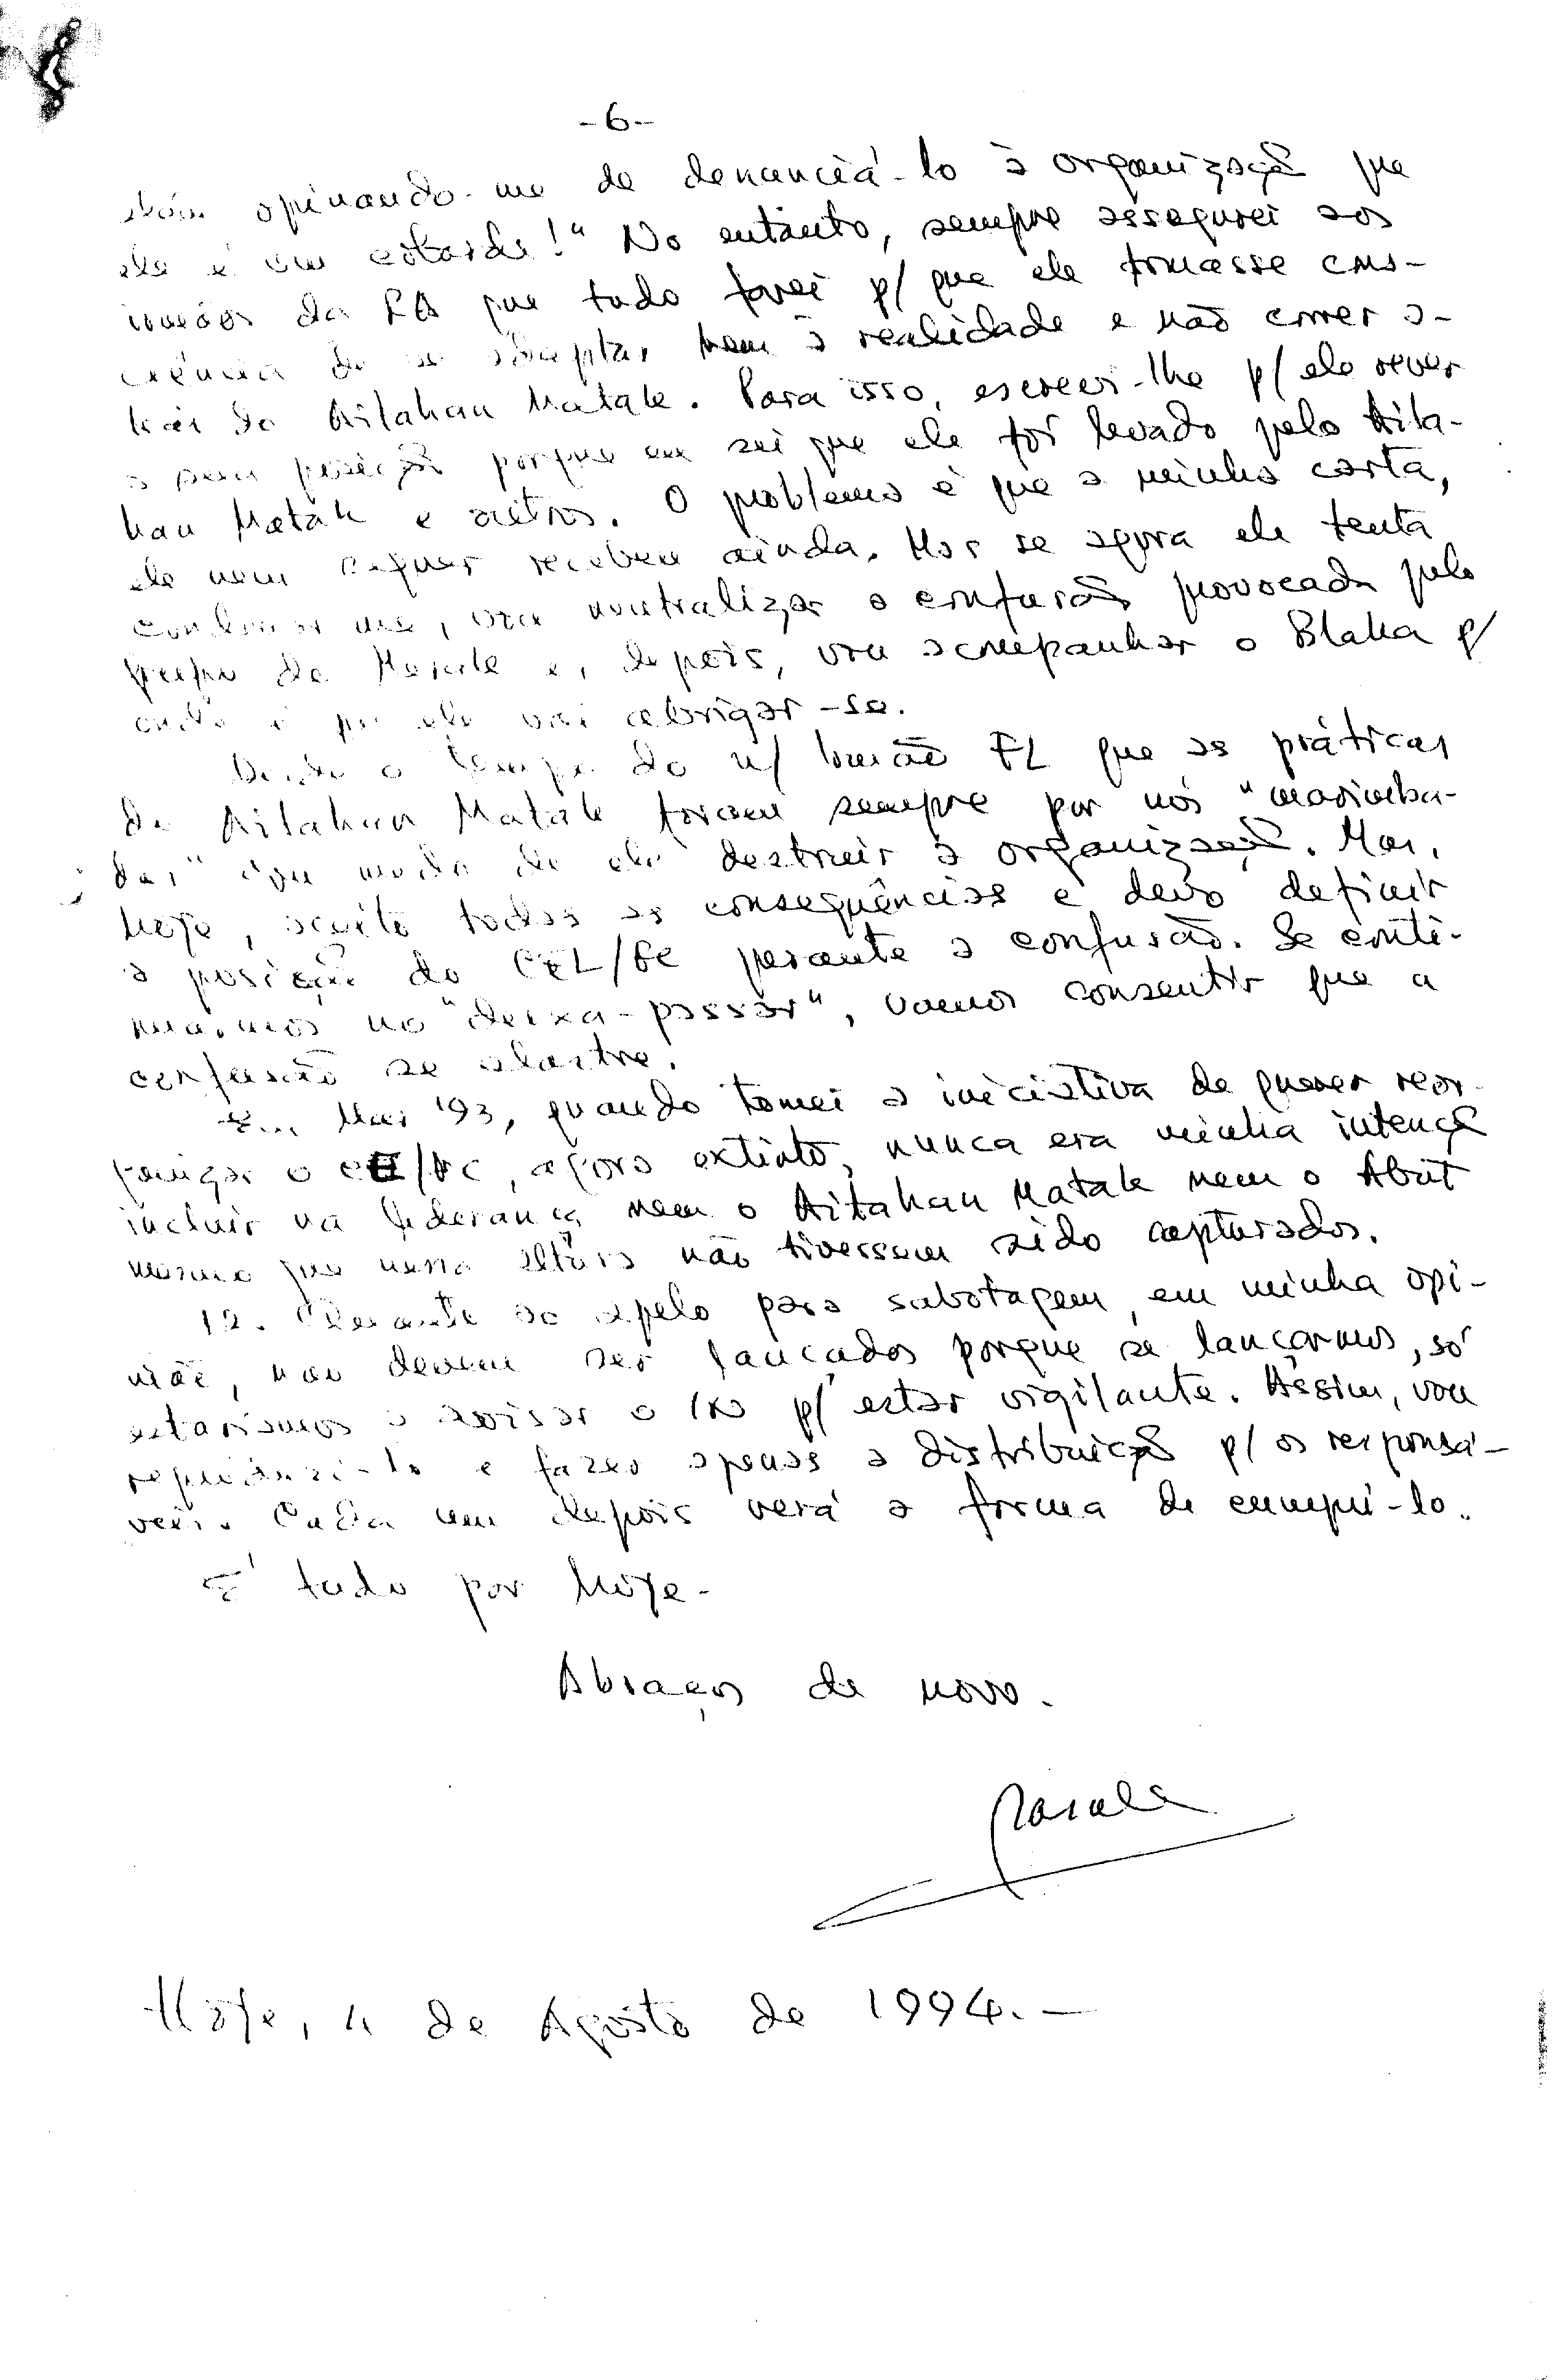 -6-
opinando-me de denunciá-lo à organização que
ele é um cobarde!" No entanto, sempre assegurei aos
irmãos da que tudo farei p/ que ele tomasse cons-
ciência de se adaptar bem à realidade e não correr a-
trás do Aitahan Matak. Para isso, escrevi-lhe p/ ele rever
a sua posição porque eu sei que ele foi levado pelo Aita-
han Matak e outros. O problema é que a minha carta,
ele nem sequer recebeu ainda. Mas se agora ele tenta
me, vou neutralizar a confusão provocada pelo
grupo do e, depois, vou acompanhar o p/
onde é que ele vai abrigar-se.
Desde o tempo do n/ Irmão FL que as práticas
do Aitahan Matak foram sempre por nós "marimba-
das" modo de ele destruir a organização. Mas,
hoje, aceito todas as consequências e devo definir
a posição do perante a confusão. Se conti-
nuarmos no "deixa-passar", vamos consentir que a
confusão se alastre.
Em Mai '93, quando tomei a iniciativa de querer reor-
ganizar o agora extinto, nunca era minha intenção
incluir na liderança nem o Aitahan Matak nem o
mesmo que nessa altura não tivessem sido capturados.
12. ao apelo para sabotagem, em minha opi-
nião, não devem ser lançados porque se lançarmos, só
estaríamos a avisar o p/ estar vigilante. Assim, vou
reproduzi-lo e fazer apenas a distribuição p/ os responsá-
veis. Cada um depois verá a forma de cumpri-lo.
É tudo por hoje-
Abraços de novo.
Hoje, 4 de Agosto de 1994.-